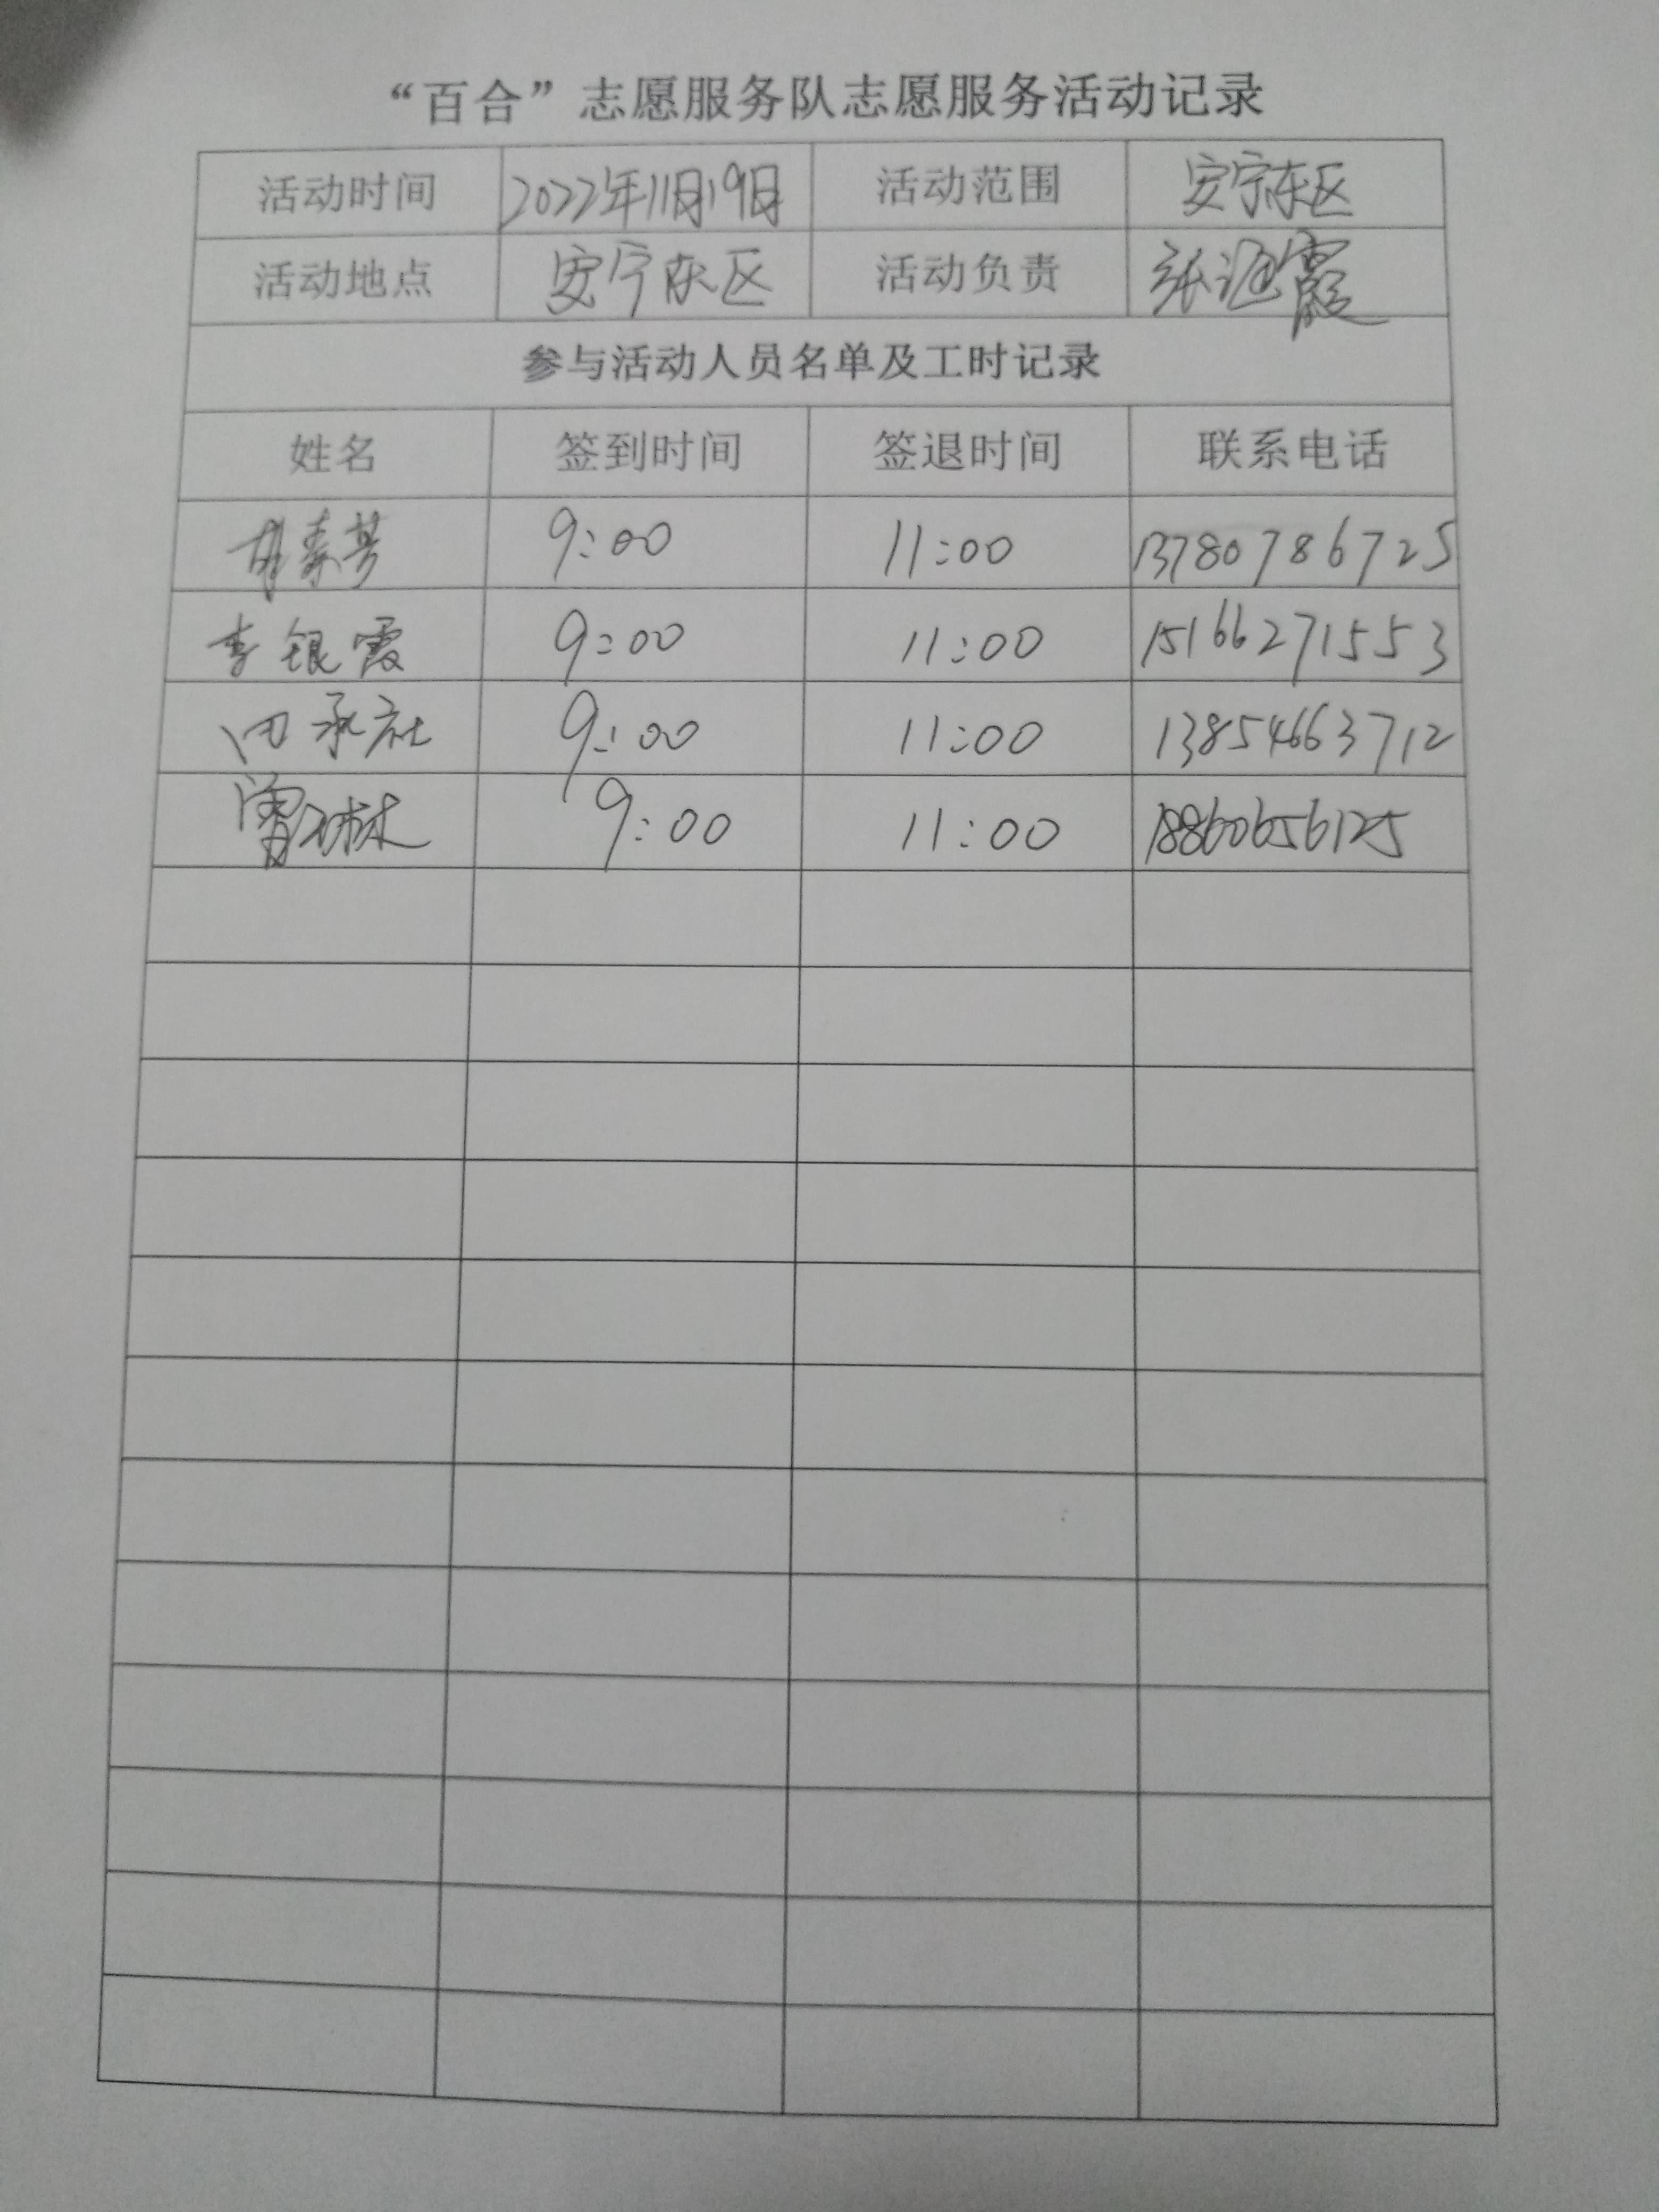 “百合”志愿服务队志愿服务活动记录
活动时间 2022年11月19日 活动范围 安宁东区
活动地点 安宁东区 活动负责 张洄霞
参与活动人员名单及工时记录
姓名 签到时间 签退时间 联系电话
胡素芳 9:00 11:00 13780786725
李银霞 9:00 11:00 15166271553
田承社 9:00 11:00 13854663712
9:00 11:00 18860656125